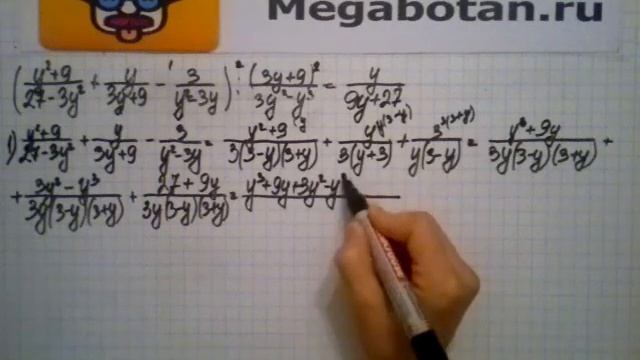 Megabotan.ru
((y²+9)/(27-3y²) + y/(3y+9) - 3/(y²-3y))² : (3y+9)²/(3y²-y³) = y/(9y+27)
1) (y²+9)/(27-3y²) + y/(3y+9) - 3/(y²-3y) = (y²+9)^y/(3(3-y)(3+y)) + y^y(3-y)/(3(y+3)) + 3^3(3+y)/(y(3-y)) = (y³+9y)/(3y(3-y)(3+y)) +
+ (3y²-y³)/(3y(3-y)(3+y)) + (27+9y)/(3y(3-y)(3+y)) = y³+9y+3y²-y